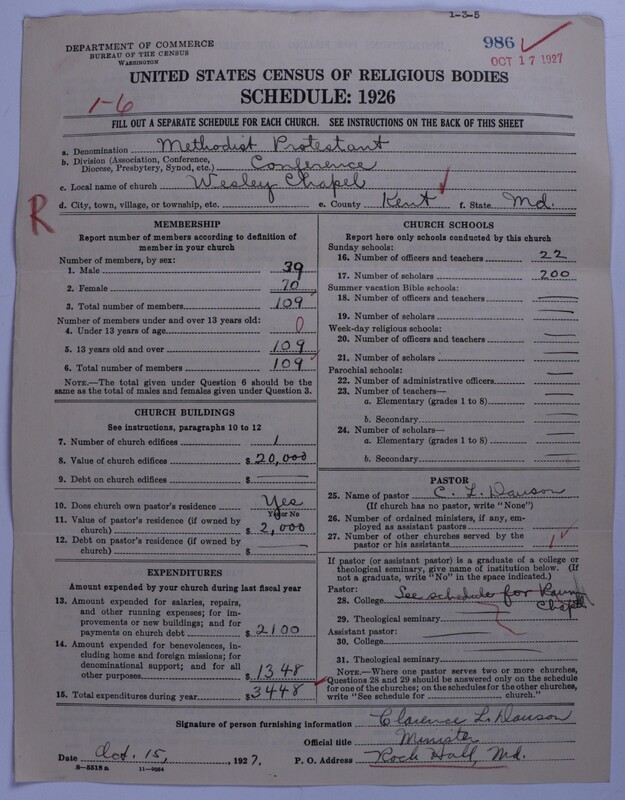 1-3-5
DEPARTMENT OF COMMERCE
BUREAU OF THE CENSUS
WASHINGTON
986
OCT 17 1927
UNITED STATES CENSUS OF RELIGIOUS BODIES
SCHEDULE: 1926
1-6
FILL OUT A SEPARATE SCHEDULE FOR EACH CHURCH. SEE INSTRUCTIONS ON THE BACK OF THIS SHEET
a. Denomination Methodist Protestant
b. Division (Association, Conference, Diocese, Presbytery, Synod, etc.) Conference
c. Local name of church Wesley Chapel
d. City, town, village, or township, etc. e. County Kent f. State Md.
R
MEMBERSHIP
Report number of members according to definition of
member in your church
Number of members, by sex:
1. Male 39
2. Female 70
3. Total number of members 109
Number of members under and over 13 years old:
4. Under 13 years of age 0
5. 13 years old and over 109
6. Total number of members 109
NOTE.—The total given under Question 6 should be
same as the total of males and females given under Question 3.
CHURCH BUILDINGS
See instructions, paragraphs 10 to 12
7. Number of church edifices 1
8. Value of church edifices $ 20,000
9. Debt on church edifices $
10. Does church own pastor's residence Yes
Yes or No
11. Value of pastor's residence (if owned by
church) $ 2,000
12. Debt on pastor's residence (if owned by
church) $
EXPENDITURES
Amount expended by your church during last fiscal year
13. Amount expended for salaries, repairs,
and other running expenses; for im-
provements or new buildings; and for
payments on church debt $ 2100
14. Amount expended for benevolences, in-
cluding home and foreign missions; for
denominational support; and for all
other purposes $ 1348
15. Total expenditures during year $ 3448
CHURCH SCHOOLS
Report here only schools conducted by this church
Sunday schools:
16. Number of officers and teachers 22
17. Number of scholars 200
Summer vacation Bible schools:
18. Number of officers and teachers
19. Number of scholars
Week-day religious schools:
20. Number of officers and teachers
21. Number of scholars
Parochial schools:
22. Number of administrative officers
23. Number of teachers—
a. Elementary (grades 1 to 8)
b. Secondary
24. Number of scholars—
a. Elementary (grades 1 to 8)
b. Secondary
PASTOR
25. Name of pastor C. L. Dawson
(If church has no pastor, write "None")
26. Number of ordained ministers, if any, em-
ployed as assistant pastors
27. Number of other churches served by the
pastor or his assistants 1
If pastor (or assistant pastor) is a graduate of a college or
theological seminary, give name of institution below. (If
not a graduate, write "No" in the space indicated.)
Pastor:
28. College See schedule for Chapel
29. Theological seminary
Assistant pastor:
30. College
31. Theological seminary
NOTE.—Where one pastor serves two or more churches,
Questions 28 and 29 should be answered only on the schedule
for one of the churches; on the schedules for the other churches,
write "See schedule for church."
Signature of person furnishing information Clarence L. Dawson
Official title Minister
Date Oct. 15, 1927. P. O. Address Rock Hall, Md.
8-5518a 11-9264